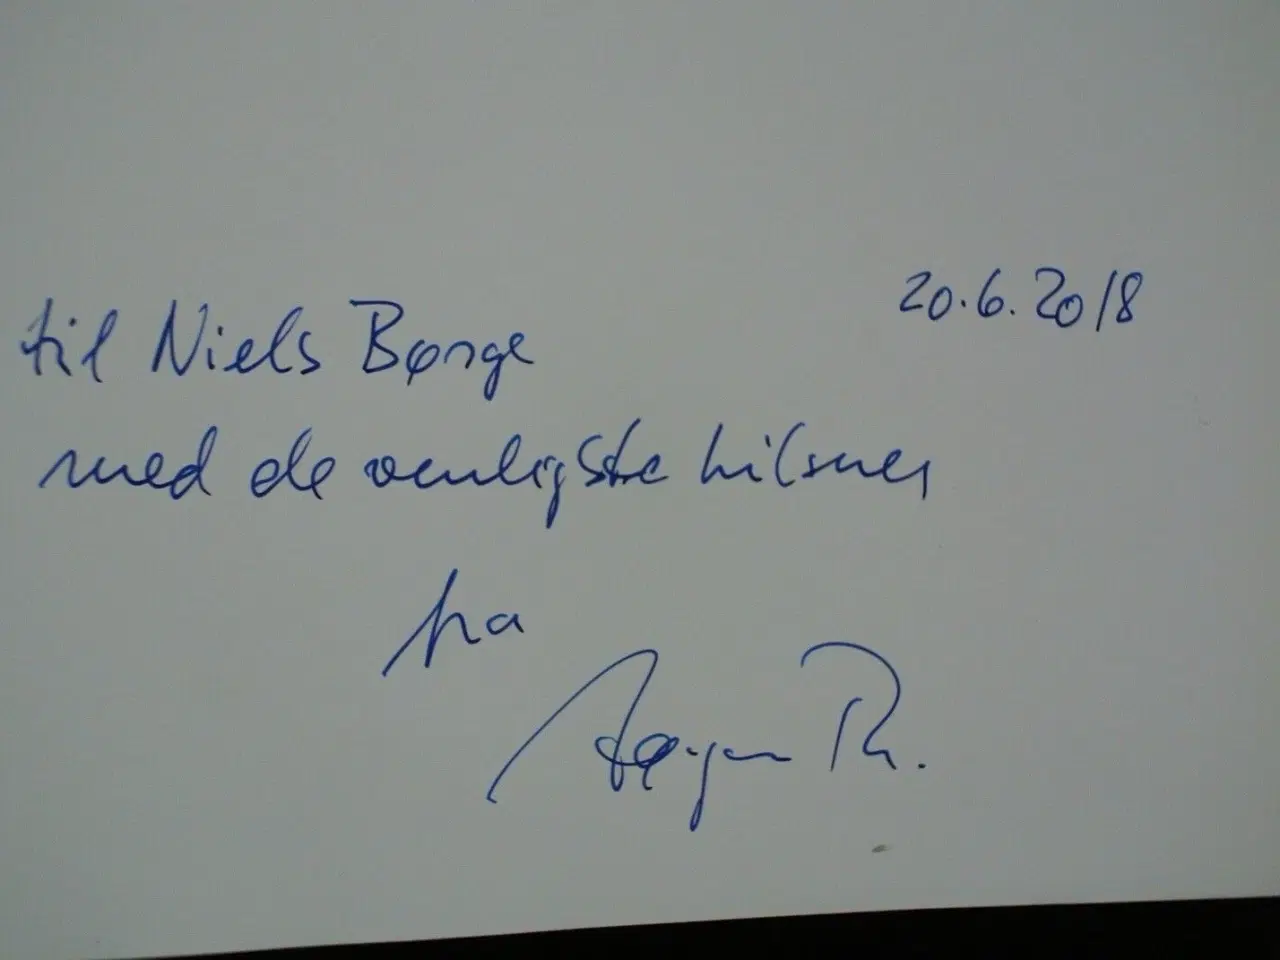 20.6.2018
til Niels Børge
med de venligste hilsner
fra